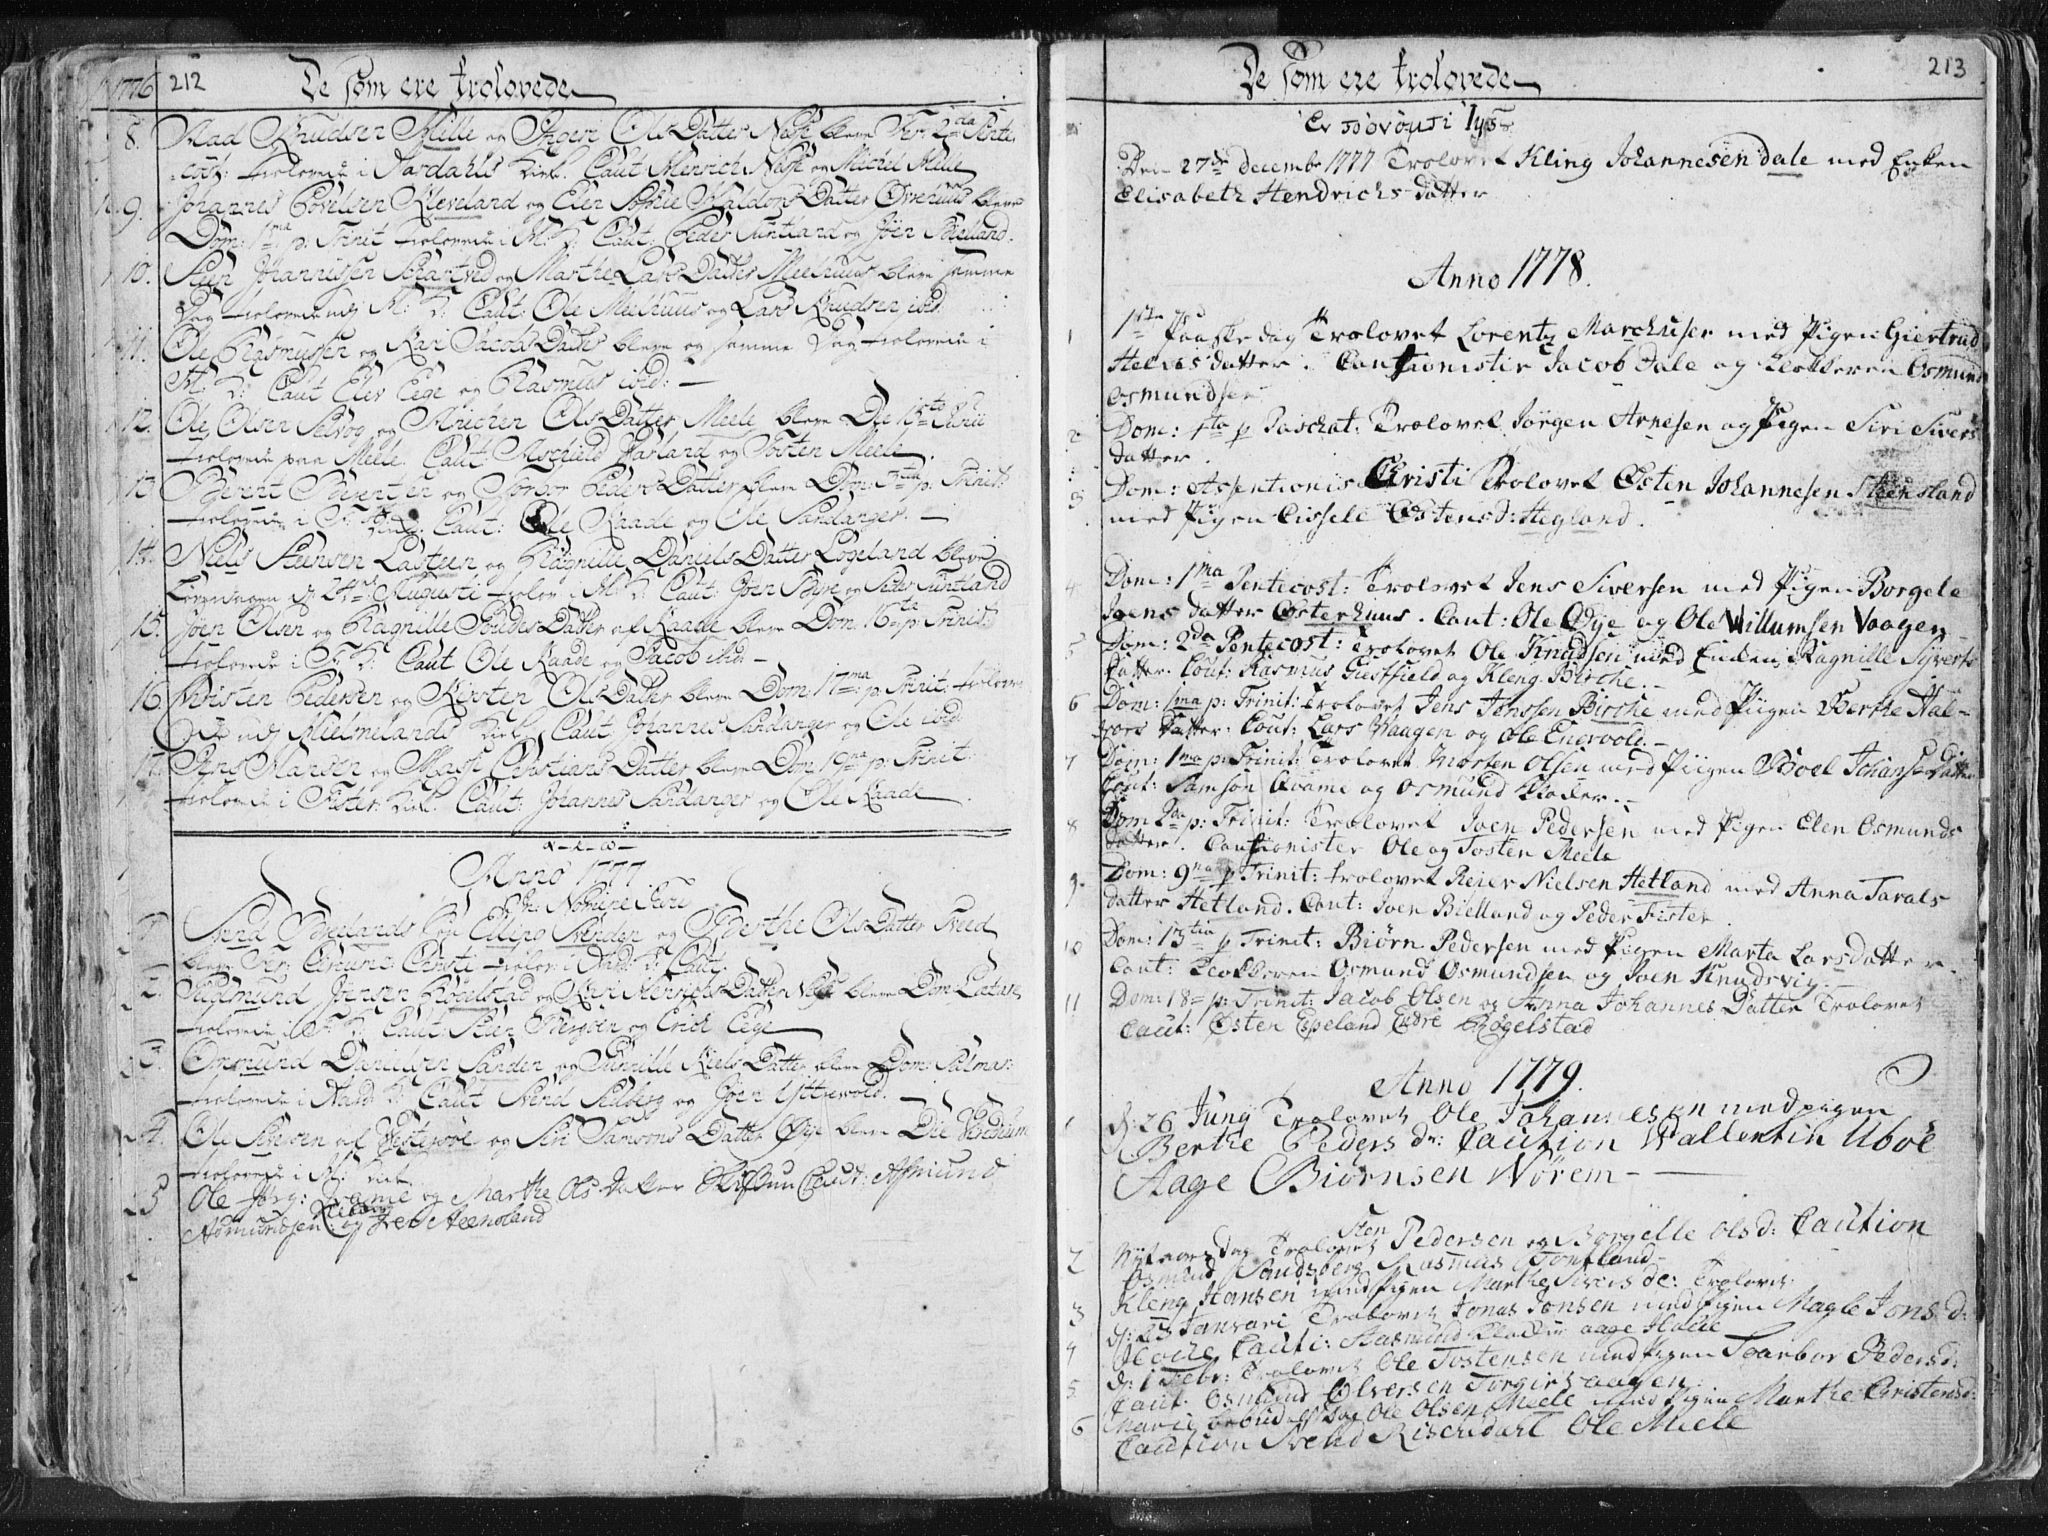 1776 212 De som ere trolovede
8. Mad Knudsen Mille og Ingeri Ols Datter Næse bleve Fer: 2da Pente¬
cost: trolovede i Aardahls Kirk. Caut Henrich Næse og Michel Mele
9. Johannes Povelsen Kleveland og Elen Sophie Haldors Datter Østerhuus bleve
Dom: 1ma p: Trinit trolovede i H: K: Caut: Peder Tuntland og Jöen Bielland.
10. Sten Johannissen og Marthe Lars Datter Meelhuus bleve samme
Dag trolovede udj H: K: Caut: Ole Meelhuus og Lars Knudsen ibid.
11. Ole Rasmussen og Kari Jacobs Datter bleve og samme Dag trolovede i
H: K: Caut Elev Eege og Rasmus ibid: —
12. Ole Olsen Selvog og Anichen Ols Datter Meele bleve Die 15de Junii
trolovede paa Meele. Caut: Aschield Varland og Tosten Meele.
13 Berent Berentsen og Torbor Peders Datter bleve Dom: p. Trinit:
trolovede i F: Kirk. Caut: Ole Raade og Ole Sandanger. —
14. Niels Steensen Lasteen og Ragnille Daniels Datter Logeland bleve
Løverdagen d 24de Augusti trolov: i H: K: Caut: Joen Bøye og Peder Tuntland
15. Joen Olsen og Ragnille Povels Datter af Raade bleve Dom: 16ta p: Trinit:
trolovede i F: K: Caut Ole Raade og Jacob ibid: —
16 Christen Pedersen og Kirsten Ols Datter bleve Dom: 17ma: p: Trinit: trolove
de udj Hielmelands Kirk. Caut Johannes Sandanger og Ole ibid:
17. Jens Hansen og Mari Christians Datter bleve Dom: 19na p: Trinit.
trolovede i Fister Kirk. Caut: Johannes Sandanger og Ole Raade.
Anno 1777
In Nomine Jesu
1 Svend Brelands Søn Elling Svendsen og Berthe Ols Datter Tveed
bleve Fer: Circumc: Christi trolov: i Aard: K: Caut.
2. Sigmund Joensen Rögelstad og Kari Henrichs Datter Næse bleve Dom Lætare
trolovede i F: K: Caut Steen Bergøen og Erich Eege
3. Omund Danielsen Sanden og Pernille Niels Datter bleve Dom: Palmar:
trolovede i Aard: K: Caut Svend Pedberg og Joen Ytterwold. —
4. Ole Siversen af Vesterøe og Siri Samsons Datter Øye bleve Die Viridium
trolovede i H: Kirk.
5 Ole Jørg: og Marthe Ols datter Caut: Asmund
Asmundsen Klocker og Steensland
213 De som ere trolovede
Den 27de decembr 1777 Trolovet Kling Johannesen Dale med Enken
Elisabeth Hendrichs datter
Anno 1778.
1 1ste Paaske dag Trolovet Lorentz Marchusen med Pigen Giertrud
Helves datter. Cautionister Jacob Dale og Klokkeren Osmund
Osmundsen
2 Dom: 4ta p Paschat: Trolovet Jörgen Arnesen og Pigen Siri Sivers
datter.
3 Dom: Assentionis Christi Trolovet Østen Johannesen Steensland
med Pigen Cissele Østensd: Hegland.
4 Dom: 1ma Pentecost: Trolovet Jens Siversen med Pigen Borgele
Joens datter Østerhuus. Caut: Ole Øye og Ole Willumsen Vaagen
5 Dom: 2da Pentecost: Trolovet Ole Knudsen med Enken Ragnille Syverts
datter. Caut: Rasmus Giesfield og Kleng Birche. —
6 Dom: 1ma p: Trinit: Trolovet Jens Jenssen Birche med Piigen Berthe Hal-
vors Datter: Caut: Lars Vaagen og Ole Enervold. —
7 Dom: 1ma p: Trinit: Trolovet Morten Olsen med Piigen Boel Johans Datter
Caut: Samson Qvame og Osmund Kloker. —
8 Dom 2da p: Trinit: Trolovet Joen Pedersen med Pigen Elen Osmunds
datter. Cautionister Ole og Tosten Meele
9. Dom: 9na p Trinit: trolovet Reier Nielsen Hetland med Anna Tarals
datter Hetland. Caut: Joen Bielland og Peder Fister.
10 Dom: 13tia p Trinit: Biörn Pedersen med Pigen Marta Larsdatter.
Caut: Klokkeren Osmund Osmundsen og Joen Knudsvig. —
11 Dom: 18 p: Trinit: Jacob Olsen og Anna Johannes Datter Trolovet
Caut: Østen Espeland Endre Rögelstad
Anno 1779.
1 d: 26 Juny Trolovet Ole Johannesen med pigen
Berthe Peders dr: Caution Wallentin Uböe
Aage Biörnsen Wörem —
2 Nytaarsdag Trolovet Sten Pedersen og Borgelle Olsd: Caution
Osmund Sandsberg Rasmus Tontland —
Kleng Hansen med Pigen Marthe Sivers de: Trolovet.
3 d: 23 Janvari Trolovet Jonas Jonsen med Pigen Magle Jonsd:
4 Cauti: Aasmund Klocker aage Haule
d: 1 Febr: Trolovet Ole Tostensen med Pigen Toarbor Pedersd:
5 Caut. Osmund Olversen Torgier Vaagen.
6 Marie bebudelsesdag Ole Olsen Meele med Pigen Marthe Christensd:
Caution Svend Risendahl Ole Miele